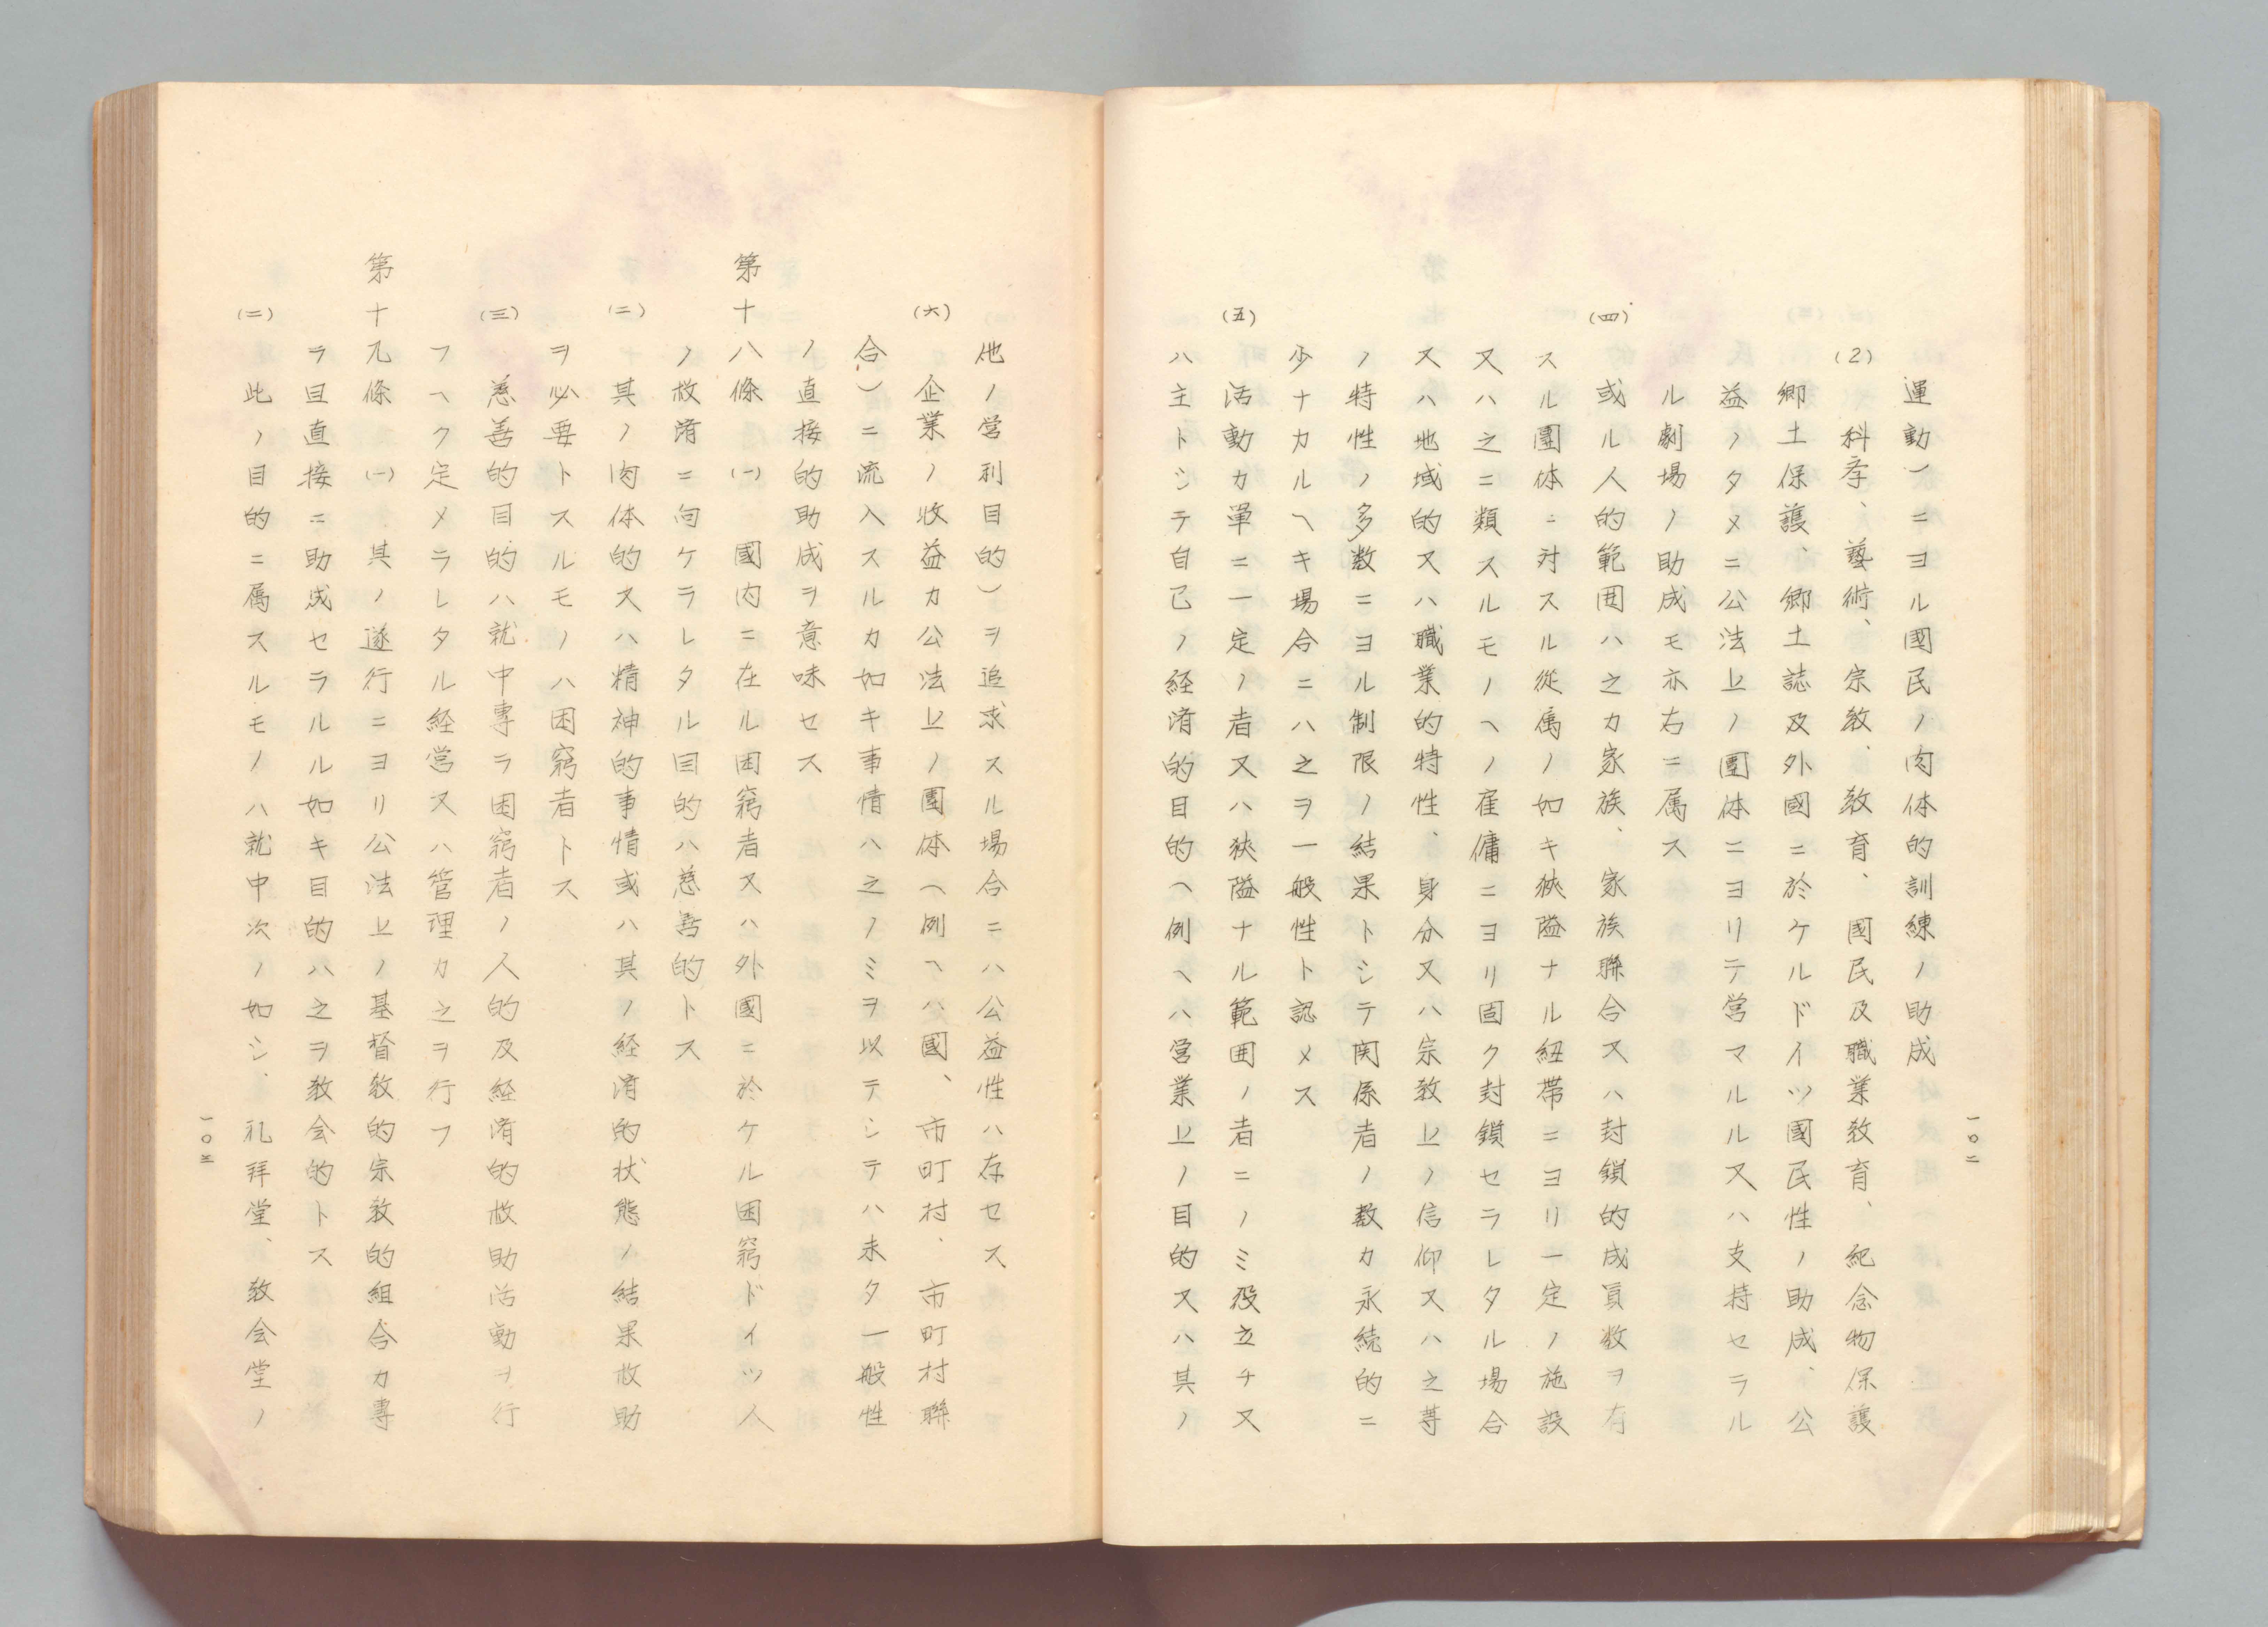 運動）ニヨル國民ノ肉体的訓練ノ助成
(2) 科学、藝術、宗教、教育、國民及職業教育、紀念物保護
郷土保護、郷土誌及外國ニ於ケルドイツ國民性ノ助成、公
益ノタメニ公法上ノ團体ニヨリテ営マルル又ハ支持セラル
ル劇場ノ助成モ亦右ニ属ス
(四) 或ル人的範囲ハ之カ家族、家族聯合又ハ封鎖的成員数ヲ有
スル團体ニ対スル従属ノ如キ狹隘ナル紐帯ニヨリ一定ノ施設
又ハ之ニ類スルモノヘノ雇傭ニヨリ固ク封鎖セラレタル場合
又ハ地域的又ハ職業的特性、身分又ハ宗教上ノ信仰又ハ之等
ノ特性ノ多数ニヨル制限ノ結果トシテ関係者ノ数カ永続的ニ
少ナカルヘキ場合ニハ之ヲ一般性ト認メス
(五) 活動カ單ニ一定ノ者又ハ狹隘ナル範囲ノ者ニノミ役立チ又
ハ主トシテ自己ノ経済的目的（例ヘハ営業上ノ目的又ハ其ノ
一〇二
他ノ営利目的）ヲ追求スル場合ニハ公益性ハ存セス
(六) 企業ノ收益カ公法上ノ團体（例ヘハ國、市町村、市町村聯
合）ニ流入スルカ如キ事情ハ之ノミヲ以テシテハ未タ一般性
ノ直接的助成ヲ意味セス
第十八條 (一) 國内ニ在ル困窮者又ハ外國ニ於ケル困窮ドイツ人
ノ救済ニ向ケラレタル目的ハ慈善的トス
(二) 其ノ肉体的又ハ精神的事情或ハ其ノ経済的状態ノ結果救助
ヲ必要トスルモノハ困窮者トス
(三) 慈善的目的ハ就中專ラ困窮者ノ人的及経済的救助活動ヲ行
フヘク定メラレタル経営又ハ管理カ之ヲ行フ
第十九條 (一) 其ノ遂行ニヨリ公法上ノ基督教的宗教的組合カ專
ラ且直接ニ助成セラルル如キ目的ハ之ヲ教会的トス
(二) 此ノ目的ニ属スルモノハ就中次ノ如シ、礼拜堂、教会堂ノ
一〇三